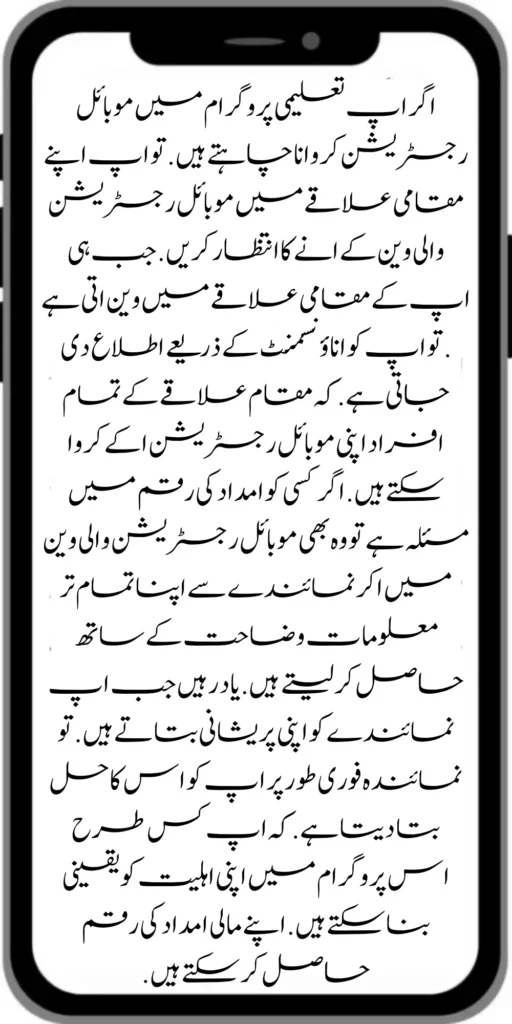 اگر اپ تعلیمی پروگرام میں موبائل
رجسٹریشن کروانا چاہتے ہیں. تو اپ اپنے
مقامی علاقے میں موبائل رجسٹریشن
والی وین کے انے کا انتظار کریں. جب ہی
اپ کے مقامی علاقے میں وین اتی ہے
. تو اپ کو اناؤنسمنٹ کے ذریعے اطلاع دی
جاتی ہے. کہ مقام علاقے کے تمام
افراد اپنی موبائل رجسٹریشن اکے کروا
سکتے ہیں. اگر کسی کو امداد کی رقم میں
مسئلہ ہے تو وہ بھی موبائل رجسٹریشن والی وین
میں اکر نمائندے سے اپنا تمام تر
معلومات وضاحت کے ساتھ
حاصل کر لیتے ہیں. یاد رہیں جب اپ
نمائندے کو اپنی پریشانی بتاتے ہیں. تو
نمائندہ فوری طور پر اپ کو اس کا حل
بتا دیتا ہے. کہ اپ کس طرح
اس پروگرام میں اپنی اہلیت کو یقینی
بنا سکتے ہیں. اپنے مالی امداد کی رقم
حاصل کر سکتے ہیں.